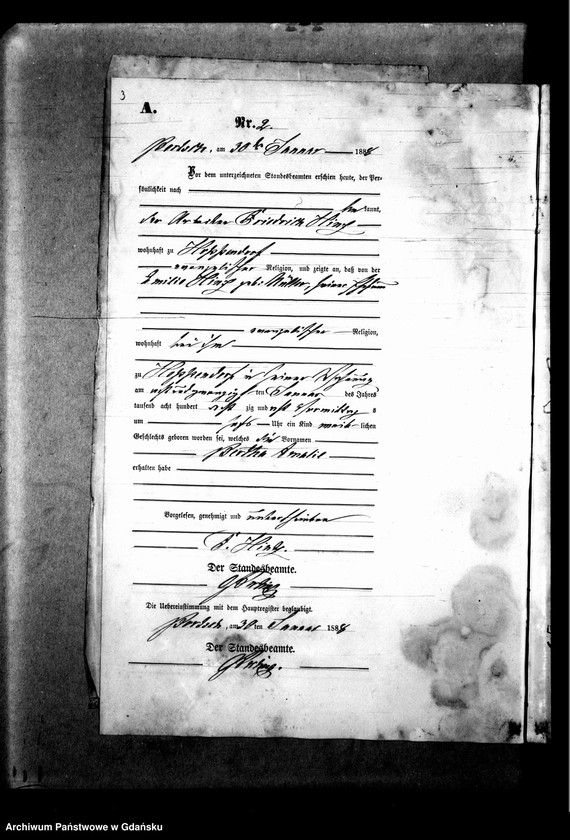 3
A.
Nr. 2.
am 30ten Januar 1888
Vor dem unterzeichneten Standesbeamten erschien heute, der Per-
sönlichkeit nach
kannt,
der Arbeiter Friedrich
wohnhaft zu Hoppendorf
evangelischer Religion, und zeigte an, daß von der
Emilie geb. Müller, seiner Ehefrau
evangelischer Religion,
wohnhaft bei ihm
zu Hoppendorf in seiner Wohnung
am achtundzwanzigsten Januar des Jahres
tausend acht hundert acht zig und acht Vormittags
um sechs Uhr ein Kind weib lichen
Geschlechts geboren worden sei, welches die Vornamen
Bertha Amalie
erhalten habe
Vorgelesen, genehmigt und unterschrieben
F.
Der Standesbeamte.
Die Uebereinstimmung mit dem Hauptregister beglaubigt.
am 30 ten Januar 1888
Der Standesbeamte.
Archiwum Państwowe w Gdańsku